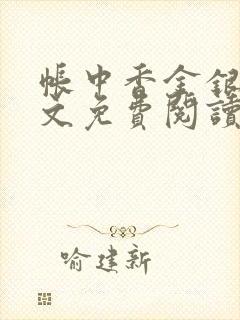 帳中香金銀
文免費閱讀
喻建新